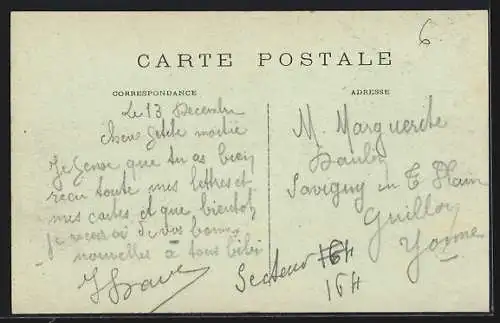 6
CARTE POSTALE
CORRESPONDANCE
ADRESSE
Le 13 Decembre
chere petite moitié
Je pense que tu as bien
recu toute mes lettres et
mes cartes et que bientot
je recevrai de vos bonne
nouvelles à tous
Secteur 164
164
M. Marguerite
Savigny en T Plain
Guillon
Yonne